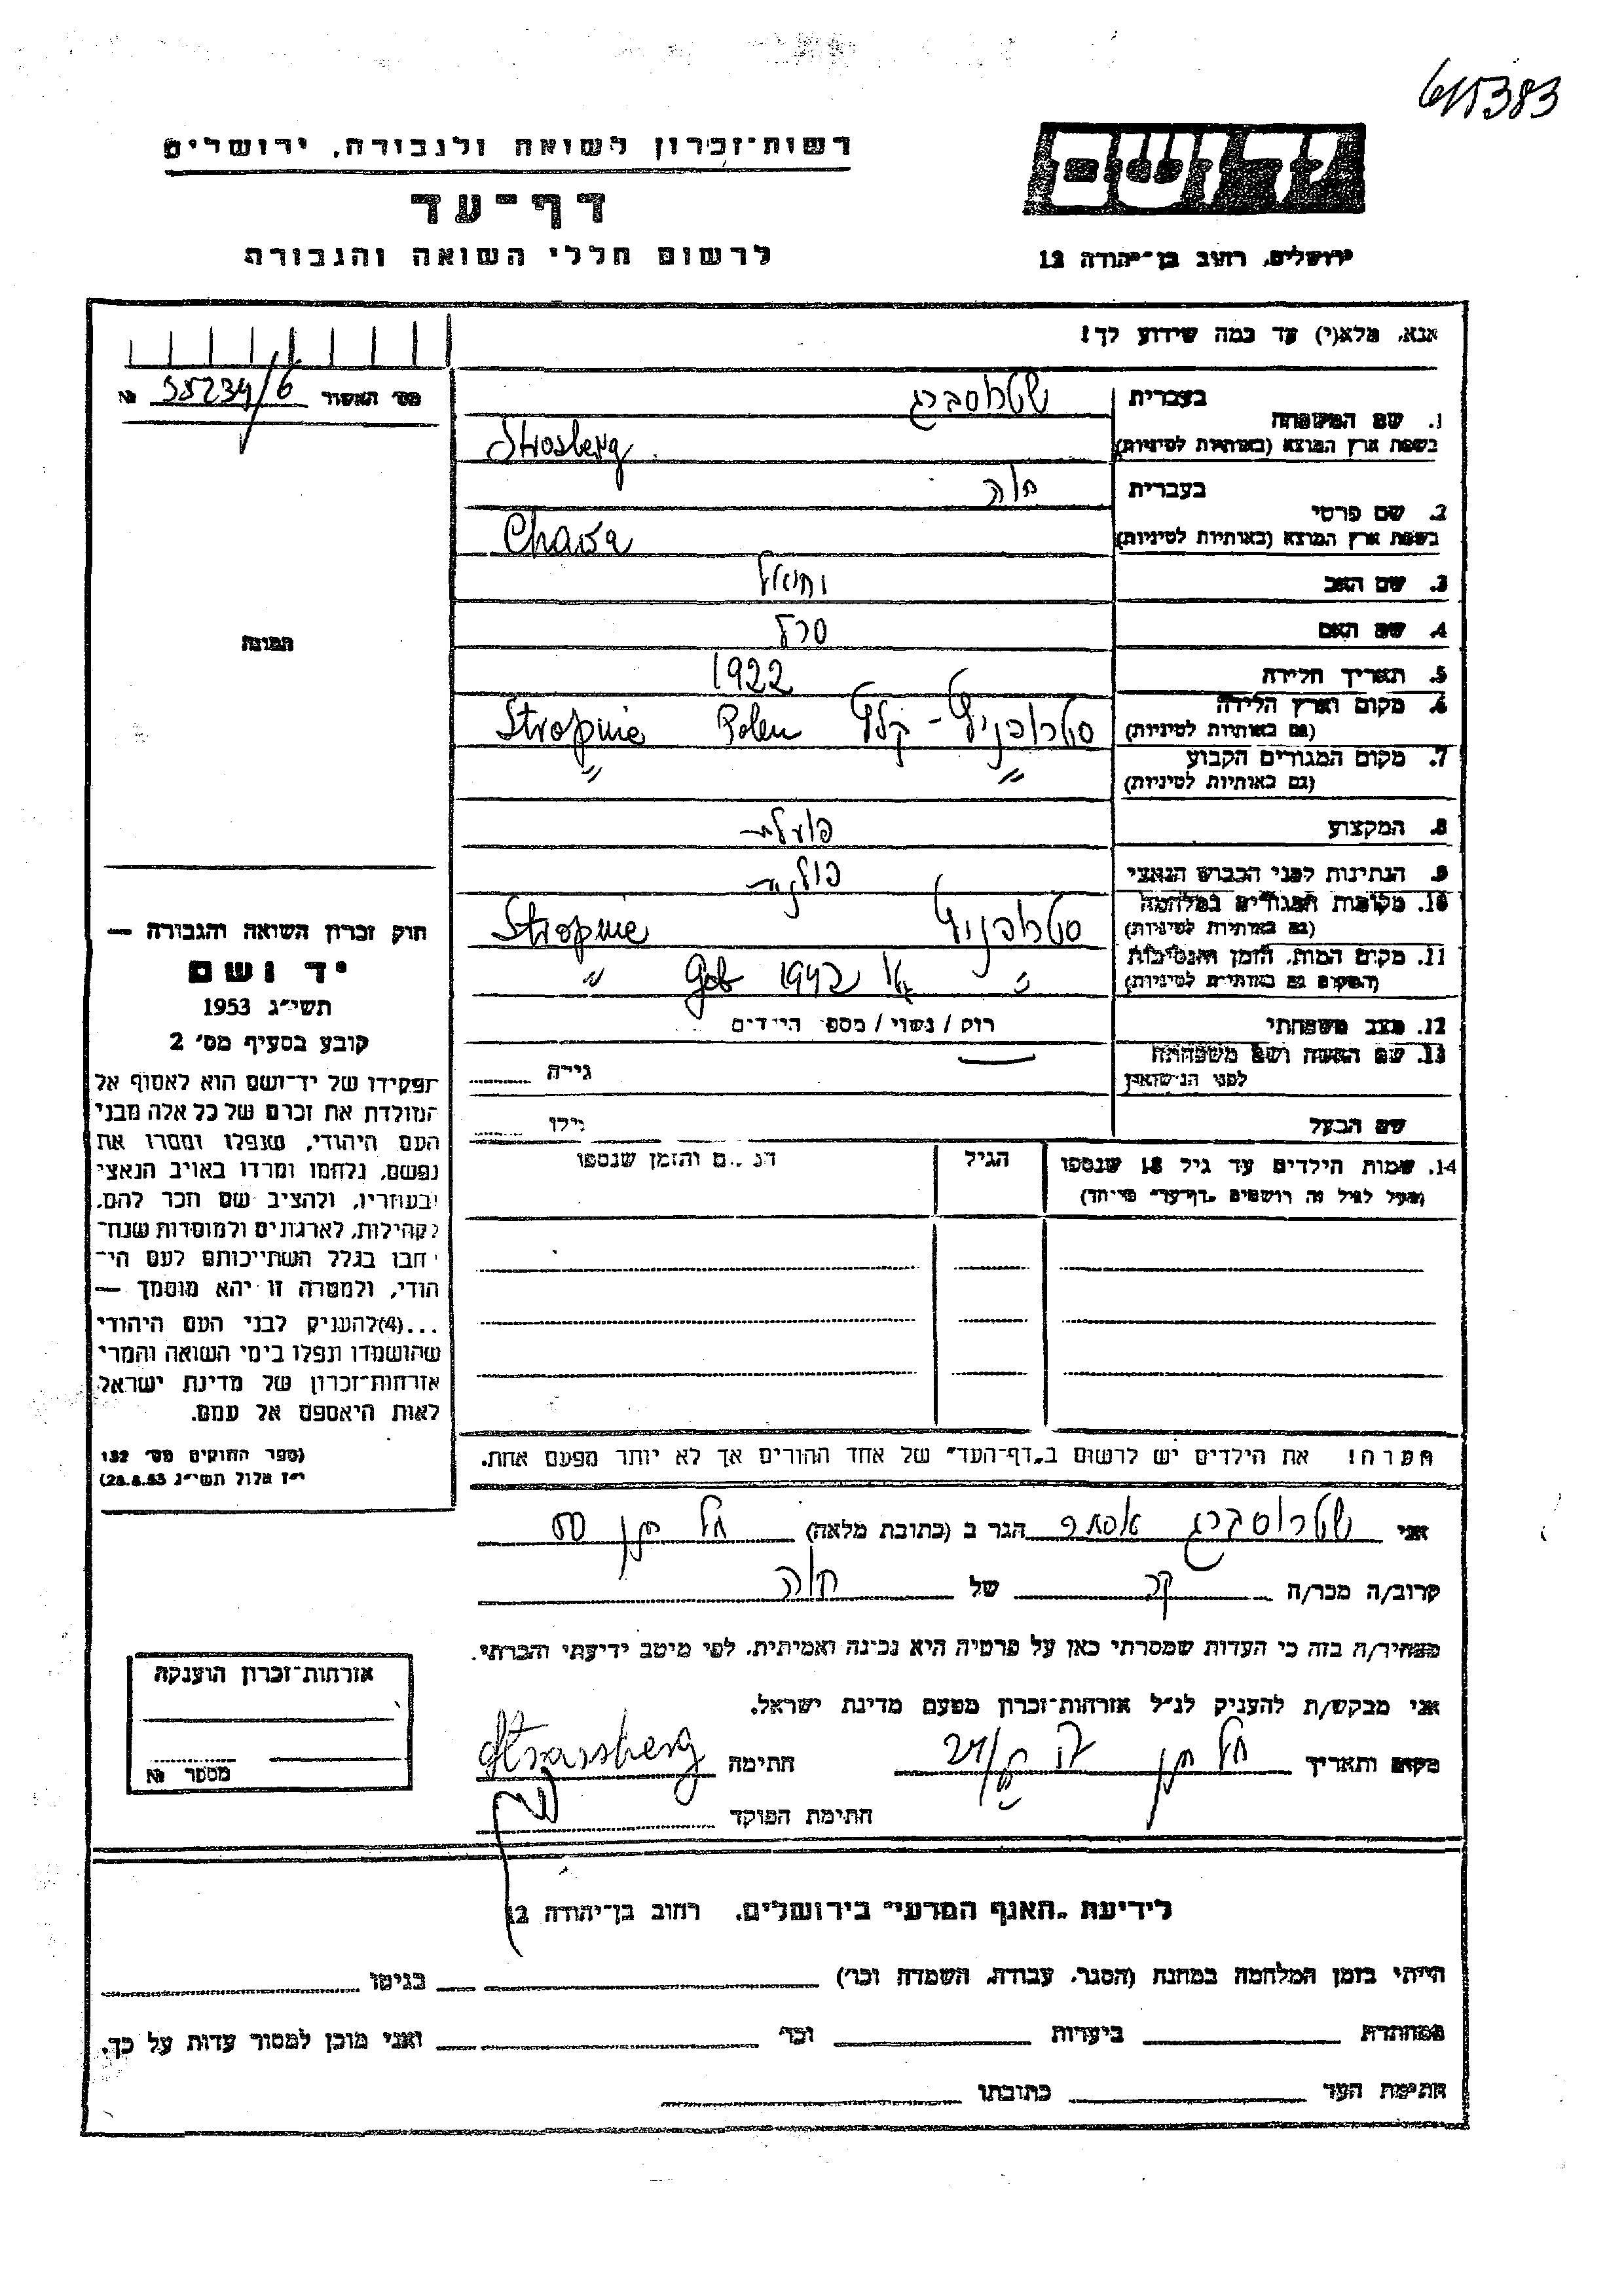 6/15383
רשות־זכרון לשואה ולגבורה, ירושלים
דף־עד
לרשום חללי השואה והגבורה
יד ושם
ירושלים, רחוב בן־יהודה 12
אנא, מלא(י) עד כמה שידוע לך!
מס׳ האשור 35234/6 №
1. שם המשפחה
בעברית שטרוסברג
בשפת ארץ המוצא (באותיות לטיניות) Strosberg
2. שם פרטי
בעברית חוה
בשפת ארץ המוצא (באותיות לטיניות) Chawa
3. שם האב
4. שם האם
5. תאריך הלידה 1922
6. מקום וארץ הלידה
(גם באותיות לטיניות) Polen
7. מקום המגורים הקבוע
(גם באותיות לטיניות) " "
8. המקצוע פועלת
9. הנתינות לפני הכבוש הנאצי פולנית
10. מקומות המגורים במלחמה
(גם באותיות לטיניות)
11. מקום המות, הזמן והנסיבות
(המקום גם באותיות לטיניות) " 1942 "
12. מצב משפחתי רוק / נשוי / מספר הילדים
13. שם האשה ושם משפחתה
לפני הנישואין גילה
שם הבעל גילו
14. שמות הילדים עד גיל 18 שנספו
(מעל לגיל זה רושמים „דף־עד" מיוחד)
הגיל
המקום והזמן שנספו
הערה! את הילדים יש לרשום ב„דף־העד" של אחד ההורים אך לא יותר מפעם אחת.
התמונה
חוק זכרון השואה והגבורה —
יד ושם
תשי״ג 1953
קובע בסעיף מס׳ 2
תפקידו של יד־ושם הוא לאסוף אל
המולדת את זכרם של כל אלה מבני
העם היהודי, שנפלו ומסרו את
נפשם, נלחמו ומרדו באויב הנאצי
ובעוזריו, ולהציב שם וזכר להם,
לקהילות, לארגונים ולמוסדות שנח־
רבו בגלל השתייכותם לעם הי־
הודי, ולמטרה זו יהא מוסמך —
...(4)להעניק לבני העם היהודי
שהושמדו ונפלו בימי השואה והמרי
אזרחות־זכרון של מדינת ישראל
לאות היאספם אל עמם.
(ספר החוקים מס׳ 132
י״ז אלול תשי״ג 28.8.53)
אני שטרוסברג אסתר הגר ב (כתובת מלאה)
קרוב/ה מכר/ה של חוה
מצהיר/ה בזה כי העדות שמסרתי כאן על פרטיה היא נכונה ואמיתית, לפי מיטב ידיעתי והכרתי.
אני מבקש/ת להעניק לנ״ל אזרחות־זכרון מטעם מדינת ישראל.
מקום ותאריך חתימה Strassberg
חתימת הפוקד
אזרחות־זכרון הוענקה
מספר №
לידיעת „האגף המדעי" בירושלים, רחוב בן־יהודה 12
הייתי בזמן המלחמה במחנה (הסגר, עבודה, השמדה וכו׳) בגיטו
במחתרת ביערות וכו׳ ואני מוכן למסור עדות על כך.
חתימת העד כתובתו